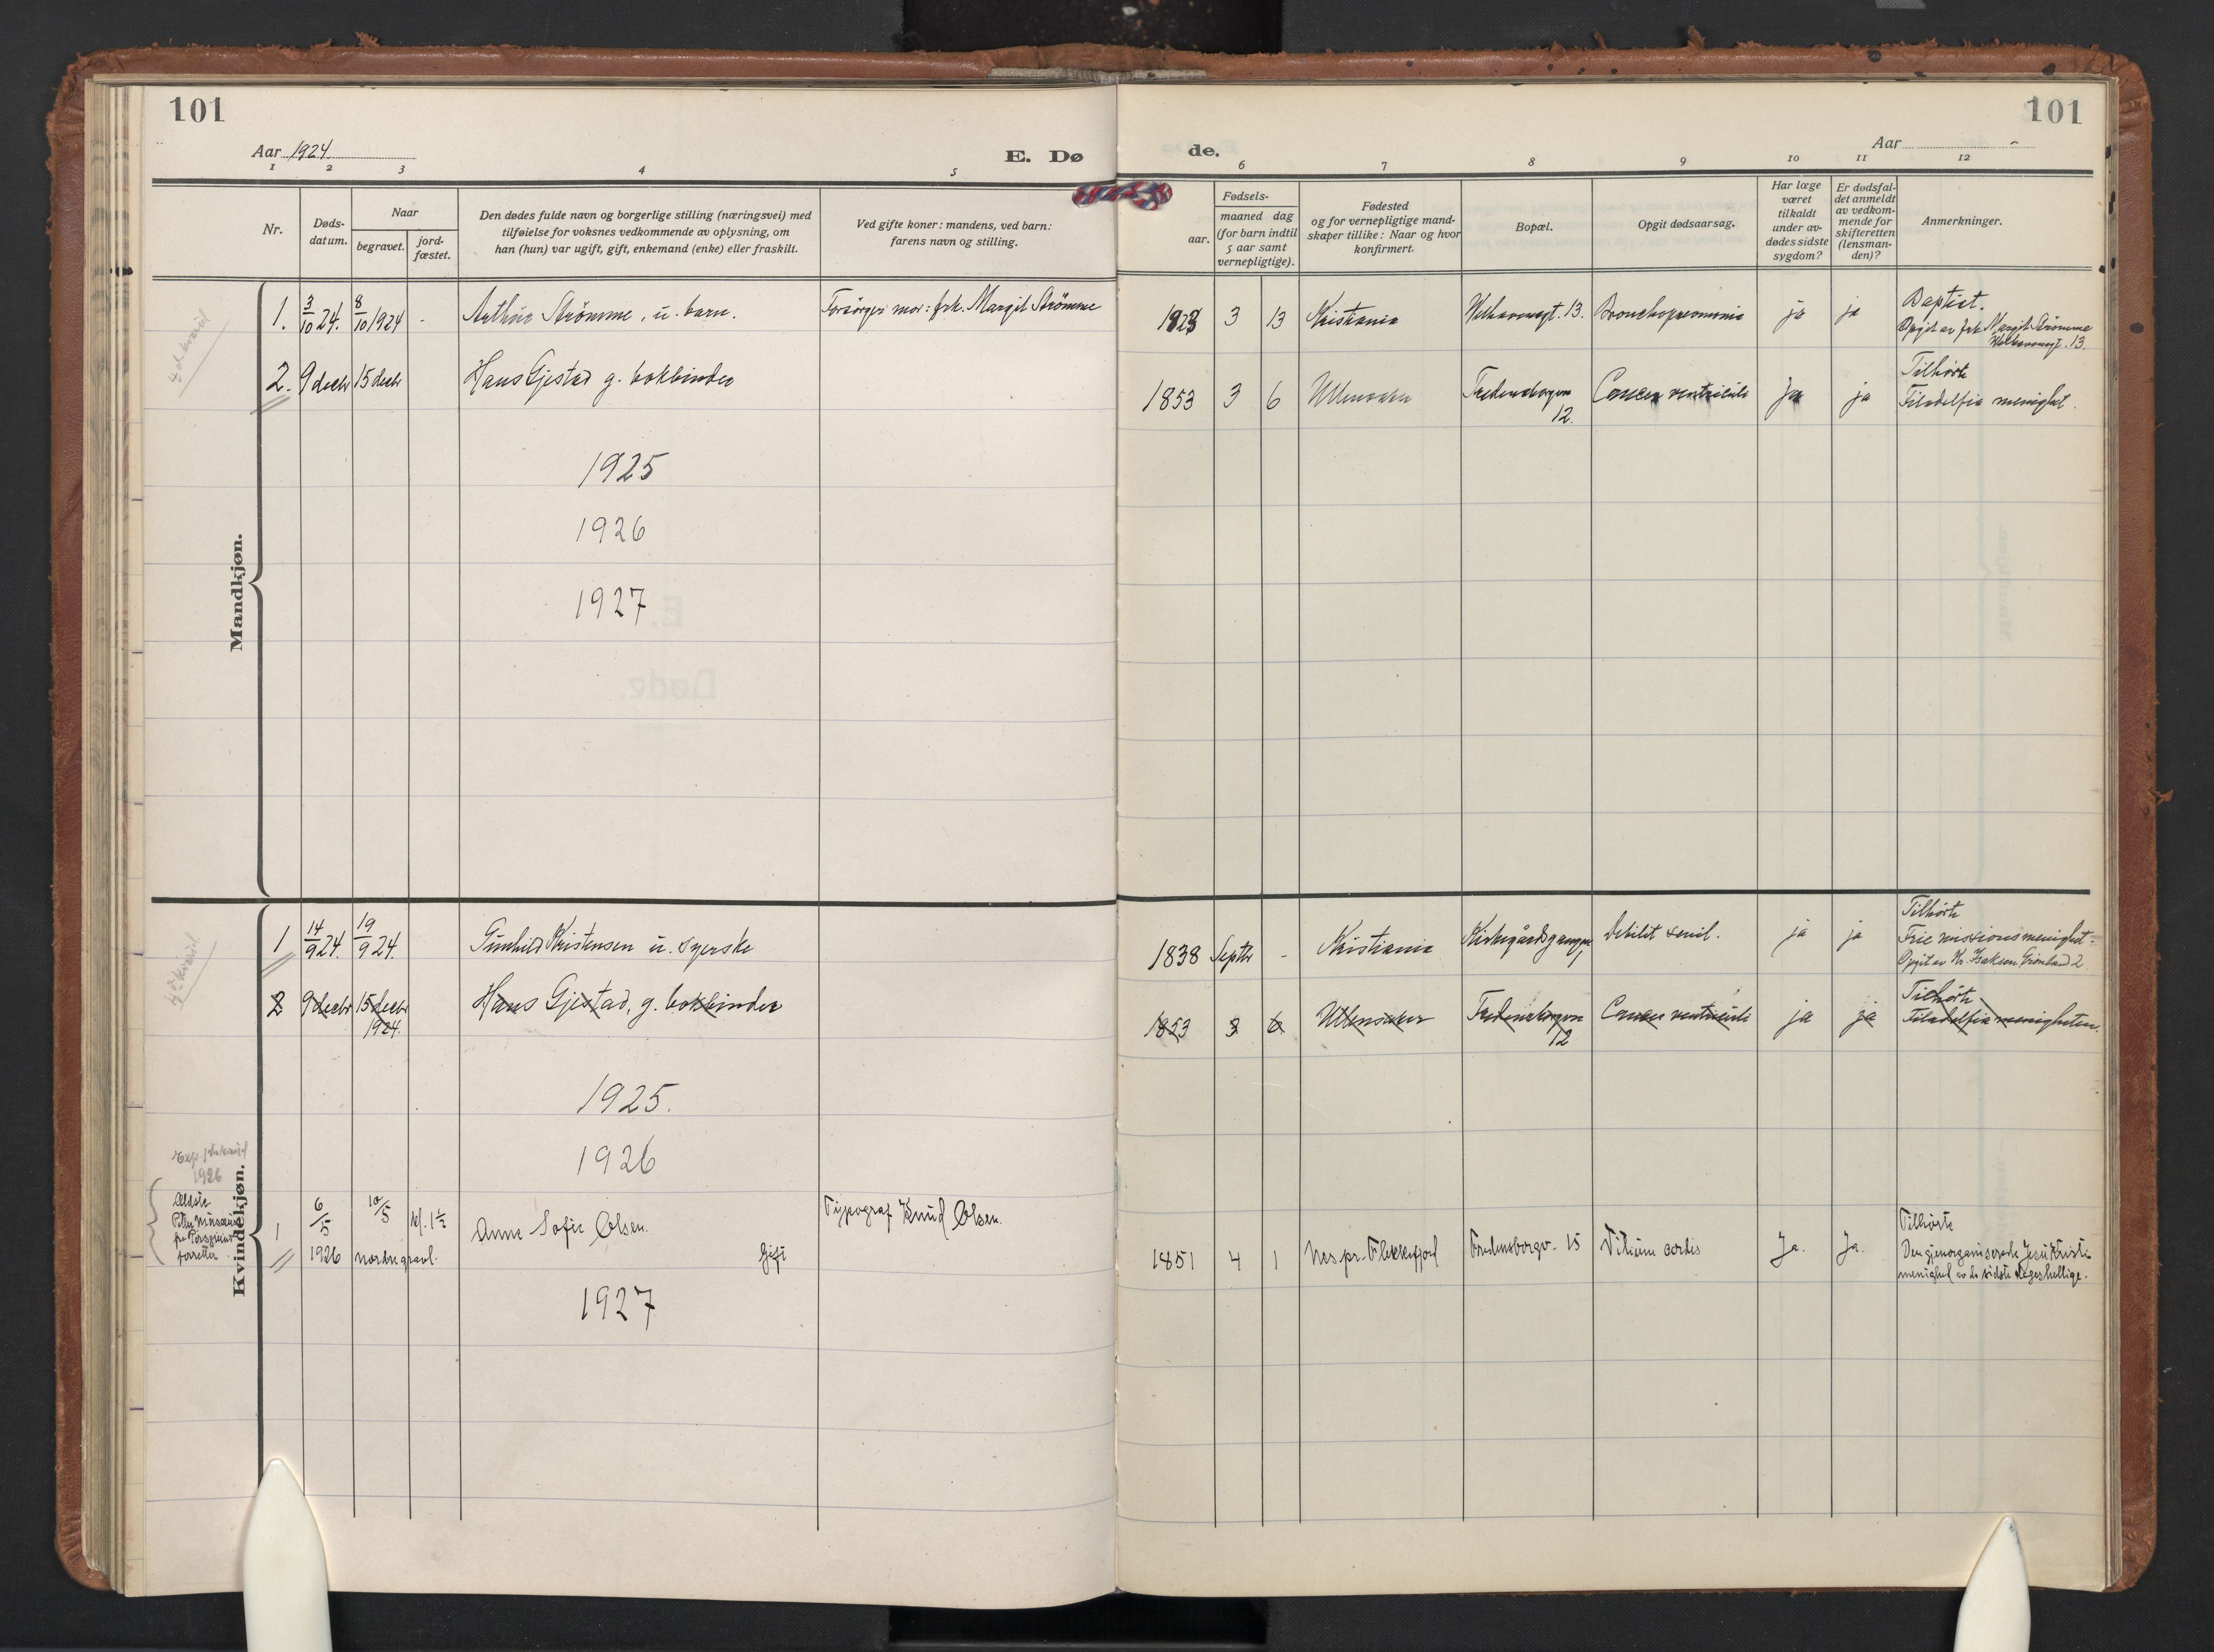 101
101
Aar 1924.
E. Dø
de.
Aar
1 2 3 4 5 6 7 8 9 10 11 12
Nr.
Døds-
datum.
Naar
begravet.
jord-
fæstet.
Den dødes fulde navn og borgerlige stilling (næringsvei) med
tilføielse for voksnes vedkommende av oplysning, om
han (hun) var ugift, gift, enkemand (enke) eller fraskilt.
Ved gifte koner: mandens, ved barn:
farens navn og stilling.
Fødsels-
aar.
maaned dag
(for barn indtil
5 aar samt
vernepligtige).
Fødested
og for vernepligtige mand-
skaper tillike: Naar og hvor
konfirmert.
Bopæl.
Opgit dødsaarsag.
Har læge
været
tilkaldt
under av-
dødes sidste
sygdom?
Er dødsfal-
det anmeldt
av vedkom-
mende for
skifteretten
(lensman-
den)?
Anmerkninger.
Mandkjøn.
1. 3/10 24. 8/10 1924 - Arthur Strömme, u. barn. Forsörger mor: frk. Margit Strömme 1923 3 13 Kristiania Welhavensgt. 13. Bronchopneumonia ja ja Baptist.
Opgit av frk. Margit Strömme
Welhavensgt. 13.
2. 9 decbr 15 decbr Hans Gjestad g. bokbinder 1853 3 6 Ullensaker Fredensborgvn 12. Cancer ventriculi ja ja Tilhörte
Filadelfia menighet.
1925
1926
1927
Kvindekjøn.
1 14/9 24. 19/9 24. Gunhild Kristensen u. syerske 1838 Septbr - Kristiania Kirkegårdsgangen 1 Debilit senil. ja ja Tilhörte
Frie missionsmenighet.
Opgit av Kr. Isaksen Grönland 2
2 9 decbr 15 decbr 1924. Hans Gjestad, g. bokbinder 1853 3 6 Ullensaker Fredensborgvn 12 Cancer ventriculi ja ja Tilhörte
Filadelfia menigheten.
1925.
1926
1926
Ældste
1 6/5 1926 10/5 kl. 1½ nordre gravl. Anne Sofie Olsen. Gift Typograf Knud Olsen. 1851 4 1 Nes pr. Flekkefjord Fredensborgv. 15 Vitium cordis Ja. Ja. Tilhørte
Den gjenorganiserede Jesu Kristi
menighed av de sidste dages hellige.
1927